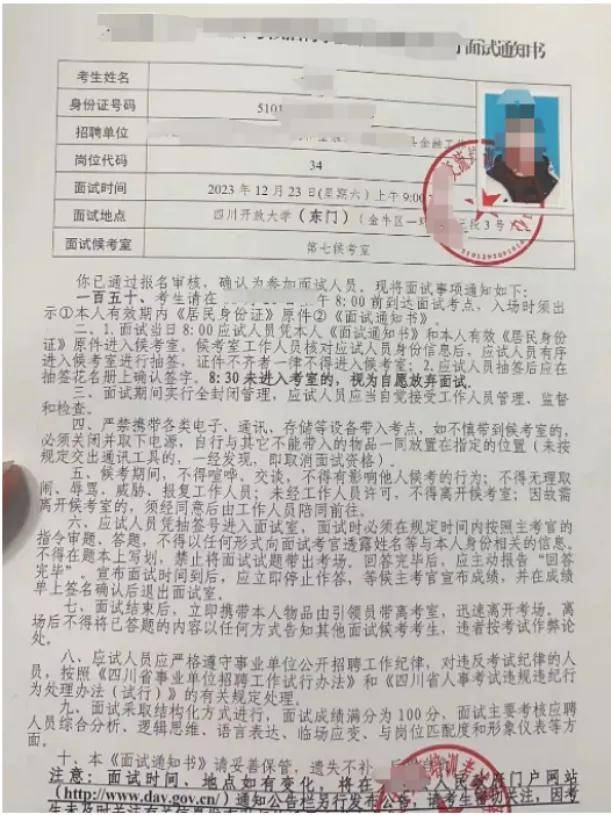 面试通知书
考生姓名
身份证号码 5101
招聘单位 县金融工作
岗位代码 34
面试时间 2023年12月23日(星期六)上午9:00
面试地点 四川开放大学(东门)(金牛区一环 三段3号
面试候考室 第七候考室
你已通过报名审核,确认为参加面试人员。现将面试事项通知如下:
一百五十、考生请在 午8:00前到达面试考点,入场时须出
示①本人有效期内《居民身份证》原件②《面试通知书》。
二、1.面试当日8:00应试人员凭本人《面试通知书》和本人有效《居民身份
证》原件进入候考室。候考室工作人员核对应试人员身份信息后,应试人员有序
进入候考室进行抽签。证件不齐者一律不得进入候考室;2.应试人员抽签后应在
抽签花名册上确认签字。8:30未进入考室的,视为自愿放弃面试。
三、面试期间实行全封闭管理,应试人员应当自觉接受工作人员管理、监督
和检查。
四、严禁携带各类电子、通讯、存储等设备带入考点,如不慎带到候考室的,
必须关闭并取下电源,自行与其它不能带入的物品一同放置在指定的位置(未按
规定交出通讯工具的,一经发现,即取消面试资格)。
五、候考期间,不得喧哗、交谈,不得有影响他人候考的行为;不得无理取
闹、辱骂、威胁、报复工作人员;未经工作人员许可,不得离开候考室;因故需
离开候考室的,须经同意后由工作人员陪同前往。
六、应试人员凭抽签号进入面试室,面试时必须在规定时间内按照主考官的
指令审题、答题,不得以任何形式向面试考官透露姓名等与本人身份相关的信息。
不得在题本上写划,禁止将面试试题带出考场。回答完毕后,应主动报告“回答
完毕” 宣布面试时间到后,应立即停止作答,等候主考官宣布成绩,并在成绩
单上签名确认后退出面试室。
七、面试结束后,立即携带本人物品由引领员带离考室,迅速离开考场。离
场后不得将已答题的内容以任何方式告知其他面试候考考生,违者按考试作弊论
处。
八、应试人员应严格遵守事业单位公开招聘工作纪律,对违反考试纪律的人
员,按照《四川省事业单位招聘工作试行办法》和《四川省人事考试违规违纪行
为处理办法(试行)》的有关规定处理。
九、面试采取结构化方式进行,面试成绩满分为100分,面试主要考核应聘
人员综合分析、逻辑思维、语言表达、临场应变、与岗位匹配度和形象仪表等方
面。
十、本《面试通知书》请妥善保管,遗失不补
注意:面试时间、地点如有变化,将在 人民政府门户网站
(http://www.day.gov.cn/)通知公告栏另行发布公告,请考生密切关注,因考